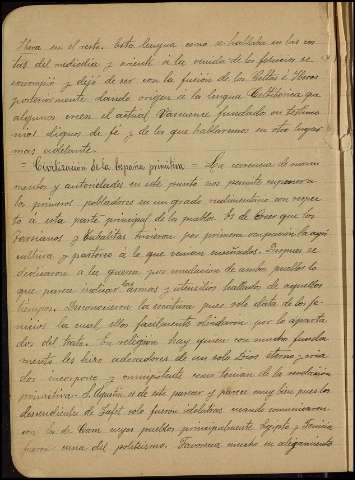 Ibera en el resto. Esta lengua como se hablaba en las cos-
tas del mediodía y oriente á la venida de los fenicios se
corrompió y dejó de ser con la fusión de los Celtas é Iberos
posteriormente dando origen á la lengua Celtíberica que
algunos creen el actual Vascuence fundado en testimo-
nios dignos de fé y de los que hablaremos en otro lugar
mas adelante.
= Civilización de la España primitiva = La carencia de monu-
mentos y autoridades en este punto nos permite suponer a
los primeros pobladores en un grado rudimentario con respec-
to á esta parte principal de los pueblos. Es de creer que los
y Tubalitas tuvieron por primera ocupación la agri-
cultura y pastoreo á la que venian enseñados. Despues se
dedicaron a la guerra por emulacion de ambos pueblos lo
que parece indican las armas y utensilios hallados de aquellos
tiempos. Desconocieron la escritura pues solo data de los fe-
nicios la cual ellos facilmente olvidaron por lo aparta-
dos del trato. En religión hay quien con mucho funda-
mento les hizo adoradores de un solo Dios eterno, cria-
dor incorporeo y omnipotente como tenian de la revelación
primitiva. S. Agustin es de este parecer y parece muy bien pues los
descendientes de Jafet solo fueron idólatras cuando comunicaron
con los de Cam cuyos pueblos principalmente Egipto y Fenicia
fueron cuna del politeismo. Favorece mucho su alegamiento